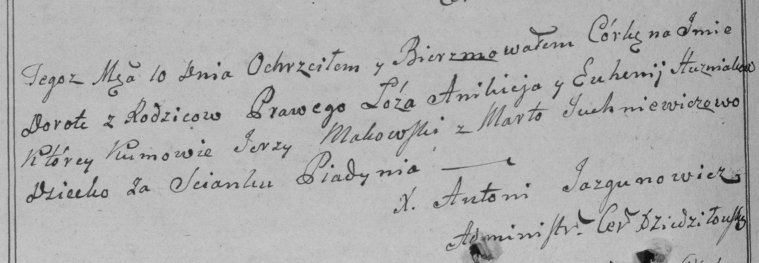 Tegoż Mca 10 Dnia Ochrzciłem y Bierzmowałem Córkę na Imie
Dorotę z Rodzicow Prawego Łoża Anikieja y Euhenij
Którey Kumowie Jerzy Makowski z Martą Juchniewiczewo
Dziecko za Scianku Piadynia
X. Antoni Jazgunowicz
Administr. Cer. Dziedziłowsk